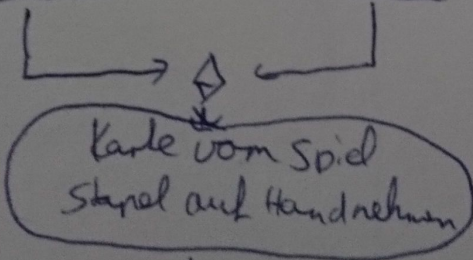 Karte vom Spiel
Stapel auf Hand nehmen